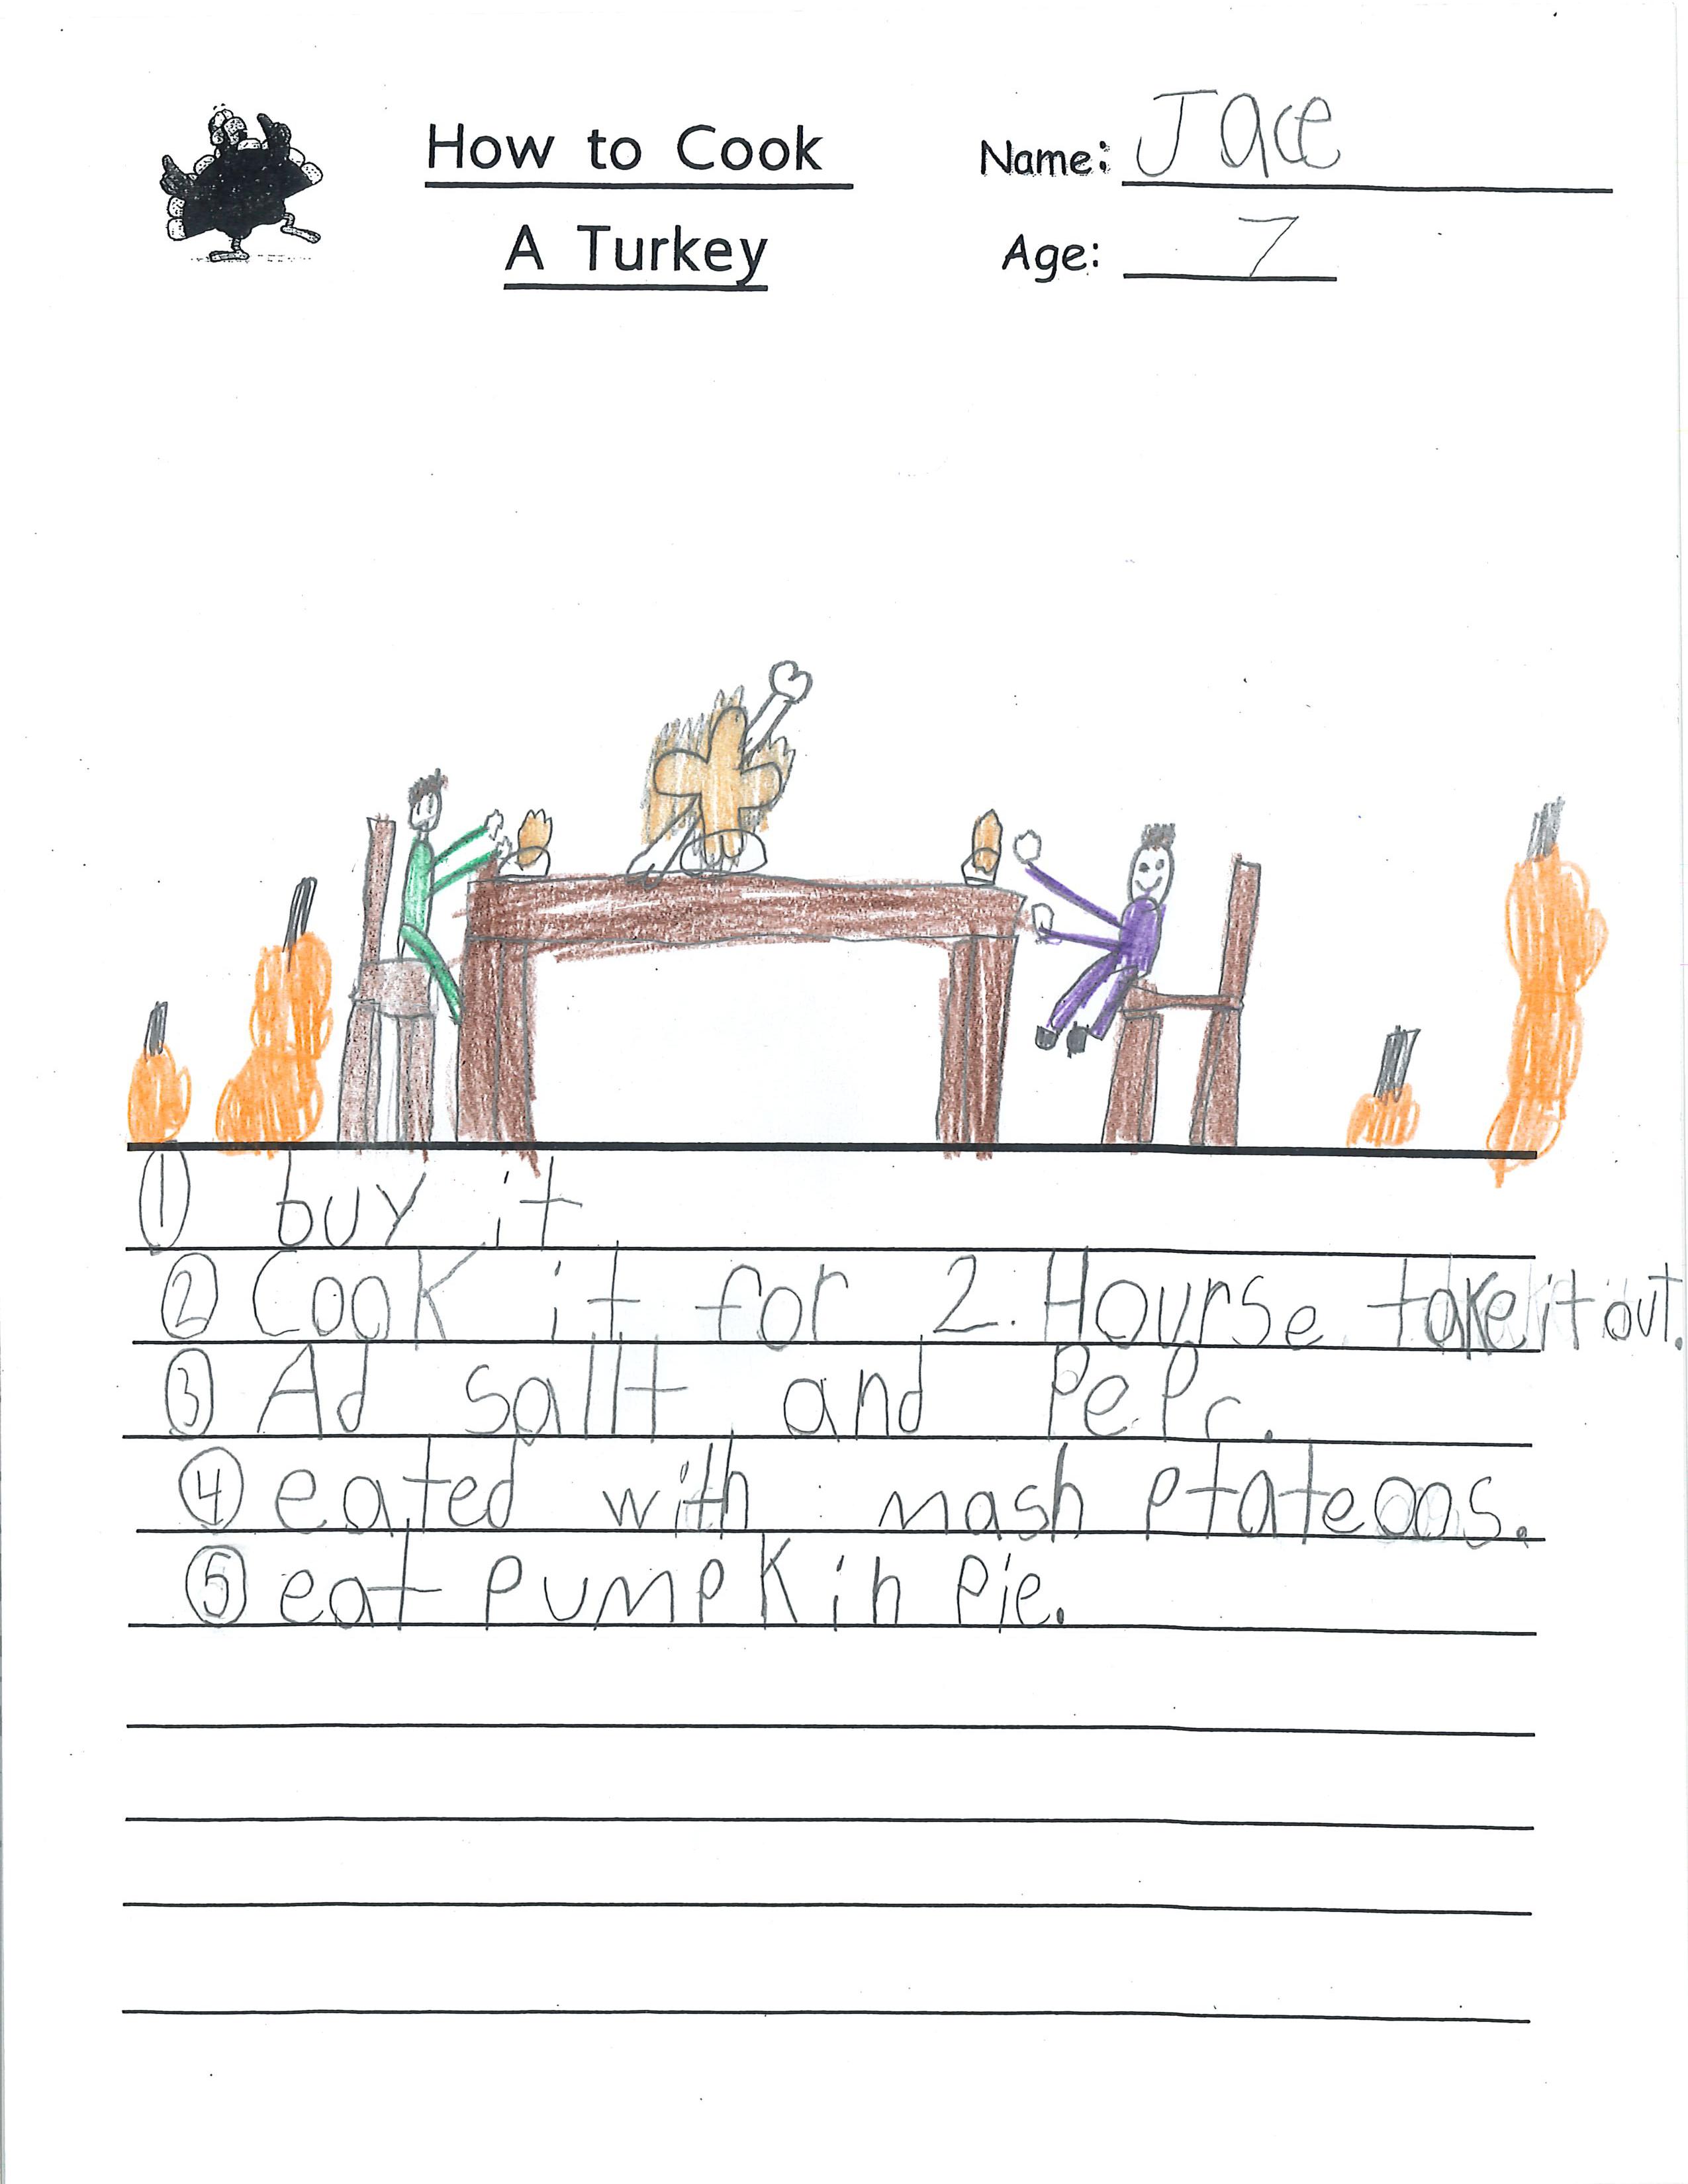 How to Cook
A Turkey
Name: Jace
Age: 7
① buy it
② Cook it for 2. Hourse take it out.
③ Ad sallt and PePr.
④ eated with mash Ptateoos.
⑤ eat pumpkin pie.